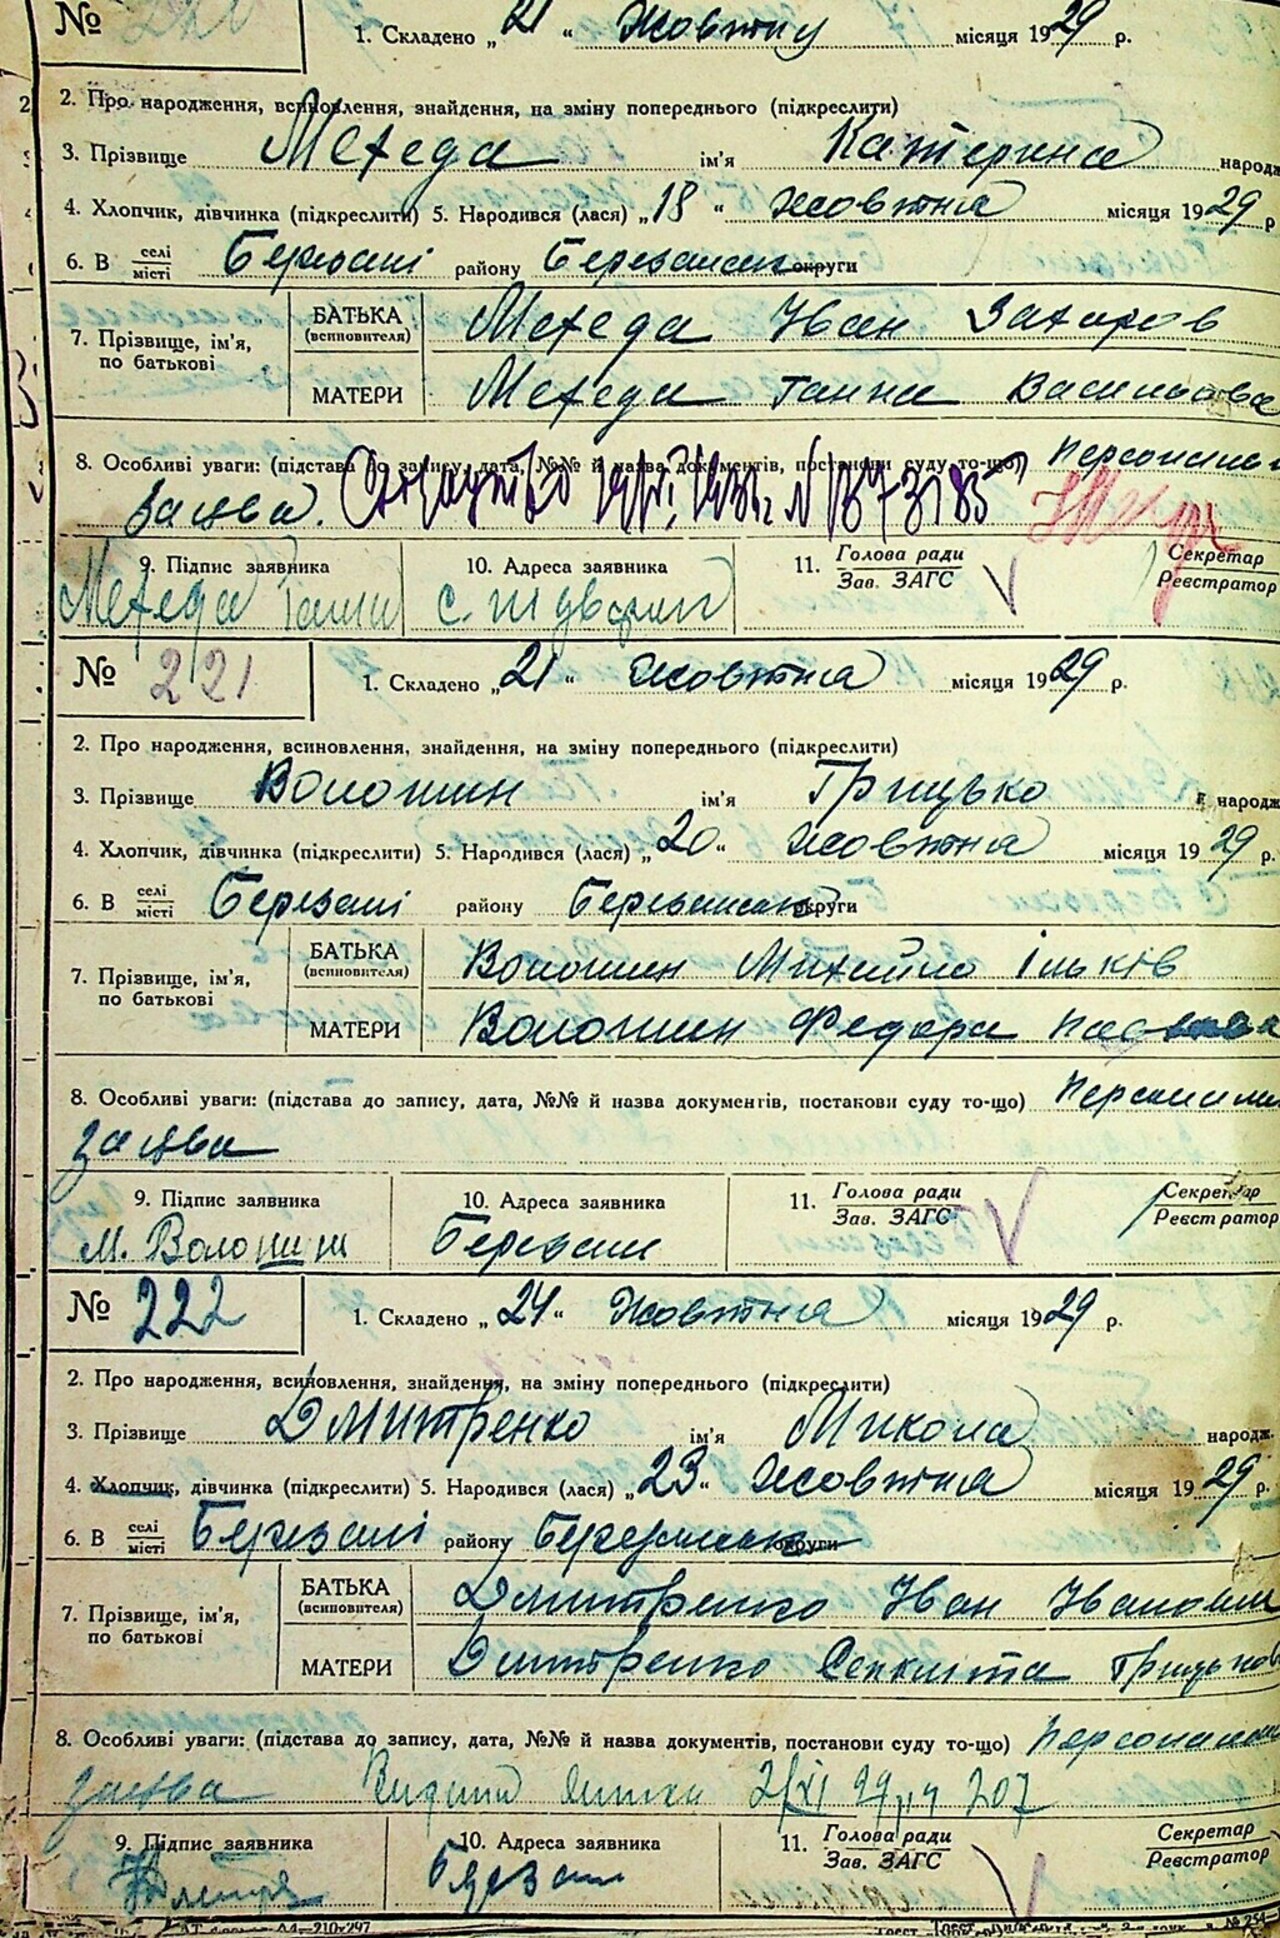 № 220
1. Складено „21“ Жовтну місяця 1929 р.
2. Про народження, всиновлення, знайдення, на зміну попереднього (підкреслити)
3. Прізвище Мехеда ім'я Катерина народж
4. Хлопчик, дівчинка (підкреслити) 5. Народився (лася) „18“ жовтня місяця 1929 р
6. В селі/місті Березані району Березанськ округи
7. Прізвище, ім'я, по батькові
БАТЬКА (всиновителя) Мехеда Іван Захаров
МАТЕРИ Мехеда Ганна Васильова
8. Особливі уваги: (підстава до запису, дата, №№ й назва документів, постанови суду то-що) Персональн
заява.
9. Підпис заявника 10. Адреса заявника 11. Голова ради/Зав. ЗАГС Секретар/Реєстратор
Мехеда Ганн с.
№ 221
1. Складено „21“ Жовтня місяця 1929 р.
2. Про народження, всиновлення, знайдення, на зміну попереднього (підкреслити)
3. Прізвище Волошин ім'я Грицько народж
4. Хлопчик, дівчинка (підкреслити) 5. Народився (лася) „20“ жовтня місяця 1929 р.
6. В селі/місті Березані району Березанськ округи
7. Прізвище, ім'я, по батькові
БАТЬКА (всиновителя) Волошин Михайло Ільків
МАТЕРИ Волошин Федора
8. Особливі уваги: (підстава до запису, дата, №№ й назва документів, постанови суду то-що) Персональн
заява
9. Підпис заявника 10. Адреса заявника 11. Голова ради/Зав. ЗАГС Секретар/Реєстратор
М. Волошин Березані
№ 222
1. Складено „24“ Жовтня місяця 1929 р.
2. Про народження, всиновлення, знайдення, на зміну попереднього (підкреслити)
3. Прізвище Дмитренко ім'я Микола народж.
4. Хлопчик, дівчинка (підкреслити) 5. Народився (лася) „23“ жовтня місяця 1929 р.
6. В селі/місті Березані району Березанськ округи
7. Прізвище, ім'я, по батькові
БАТЬКА (всиновителя) Дмитренко Іван Іванович
МАТЕРИ Дмитренко Секлита Грицьков
8. Особливі уваги: (підстава до запису, дата, №№ й назва документів, постанови суду то-що) Персональн
заява 2/XI 29 р № 207
9. Підпис заявника 10. Адреса заявника 11. Голова ради/Зав. ЗАГС Секретар/Реєстратор
Березані